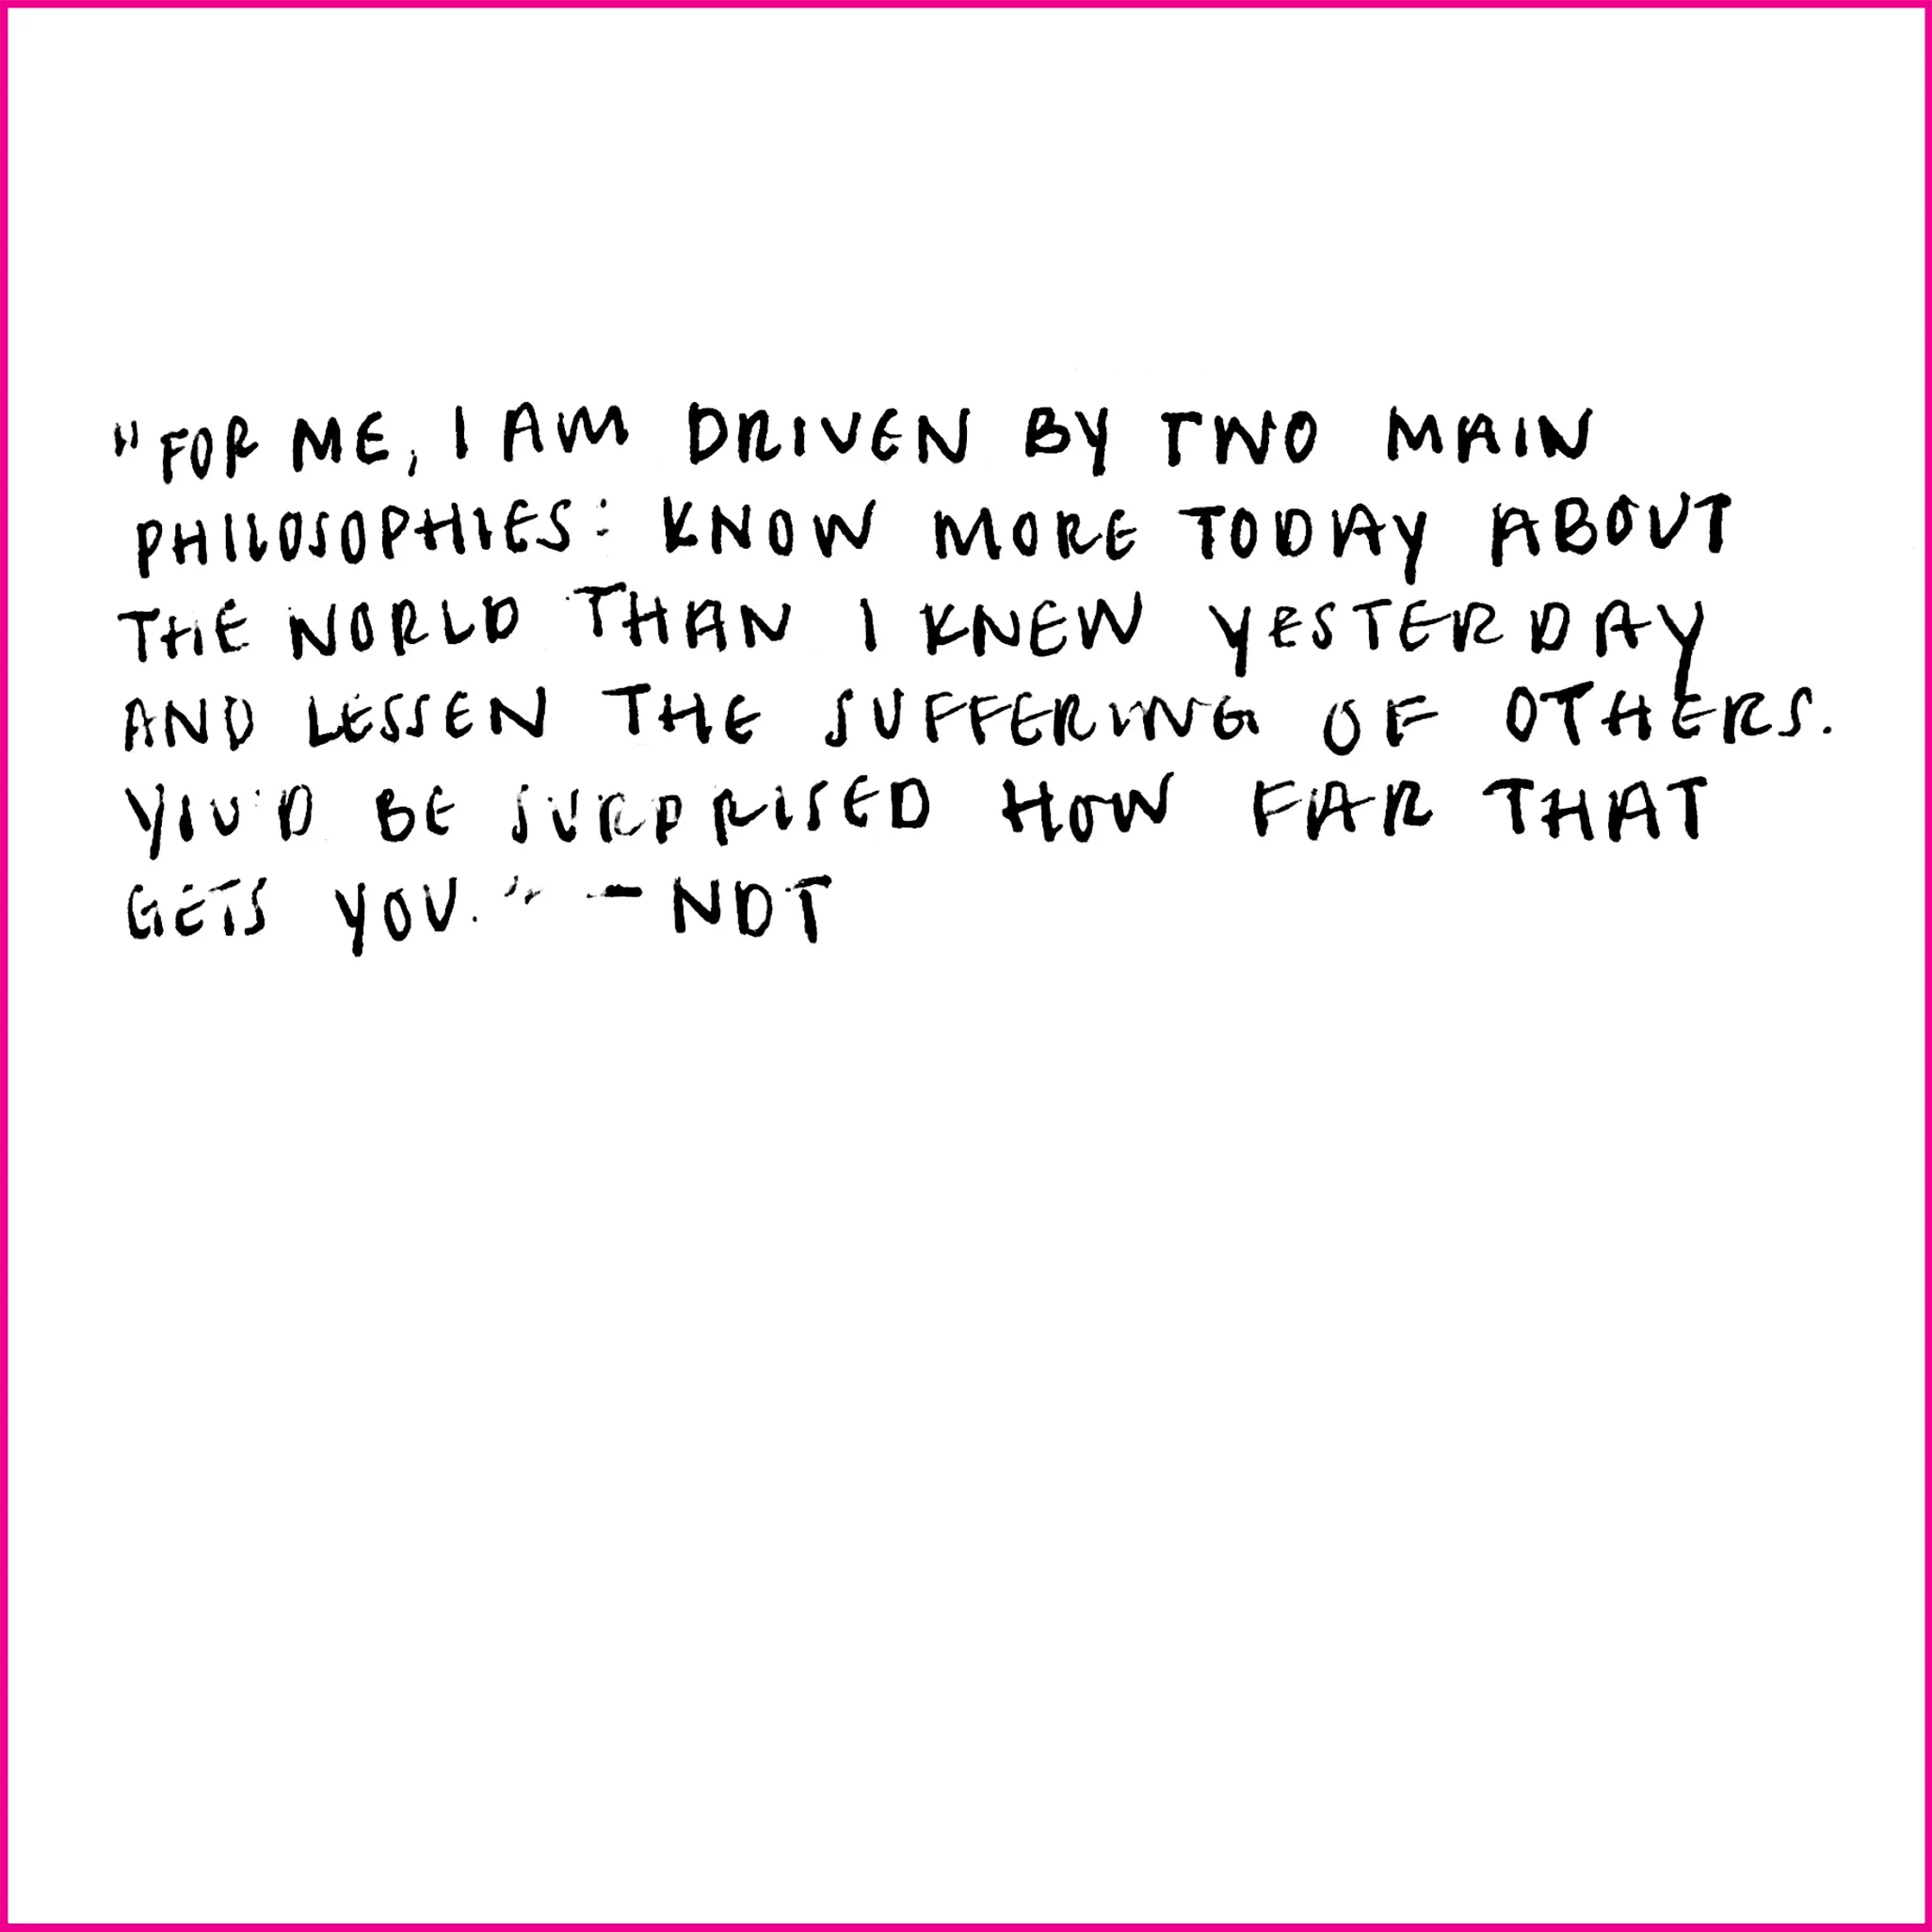 "FOR ME, I AM DRIVEN BY TWO MAIN
PHILOSOPHIES: KNOW MORE TODAY ABOUT
THE WORLD THAN I KNEW YESTERDAY
AND LESSEN THE SUFFERING OF OTHERS.
YOU'D BE SURPRISED HOW FAR THAT
GETS YOU." - NDT